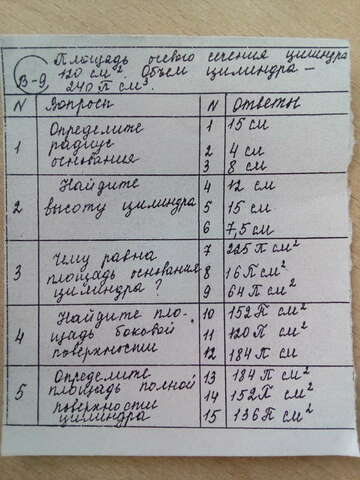 В-9. Площадь осевого сечения цилиндра
120 см². Объем цилиндра –
240 π см³.
N Вопросы N Ответы
1 Определите радиус основания
1 15 см
2 4 см
3 8 см
2 Найдите высоту цилиндра
4 12 см
5 15 см
6 7,5 см
3 Чему равна площадь основания цилиндра?
7 225 π см²
8 16 π см²
9 64 π см²
4 Найдите пло-
щадь боковой
поверхности
10 152 π см²
11 120 π см²
12 184 π см
5 Определите
площадь полной
поверхности
цилиндра
13 184 π см²
14 152 π см²
15 136 π см²